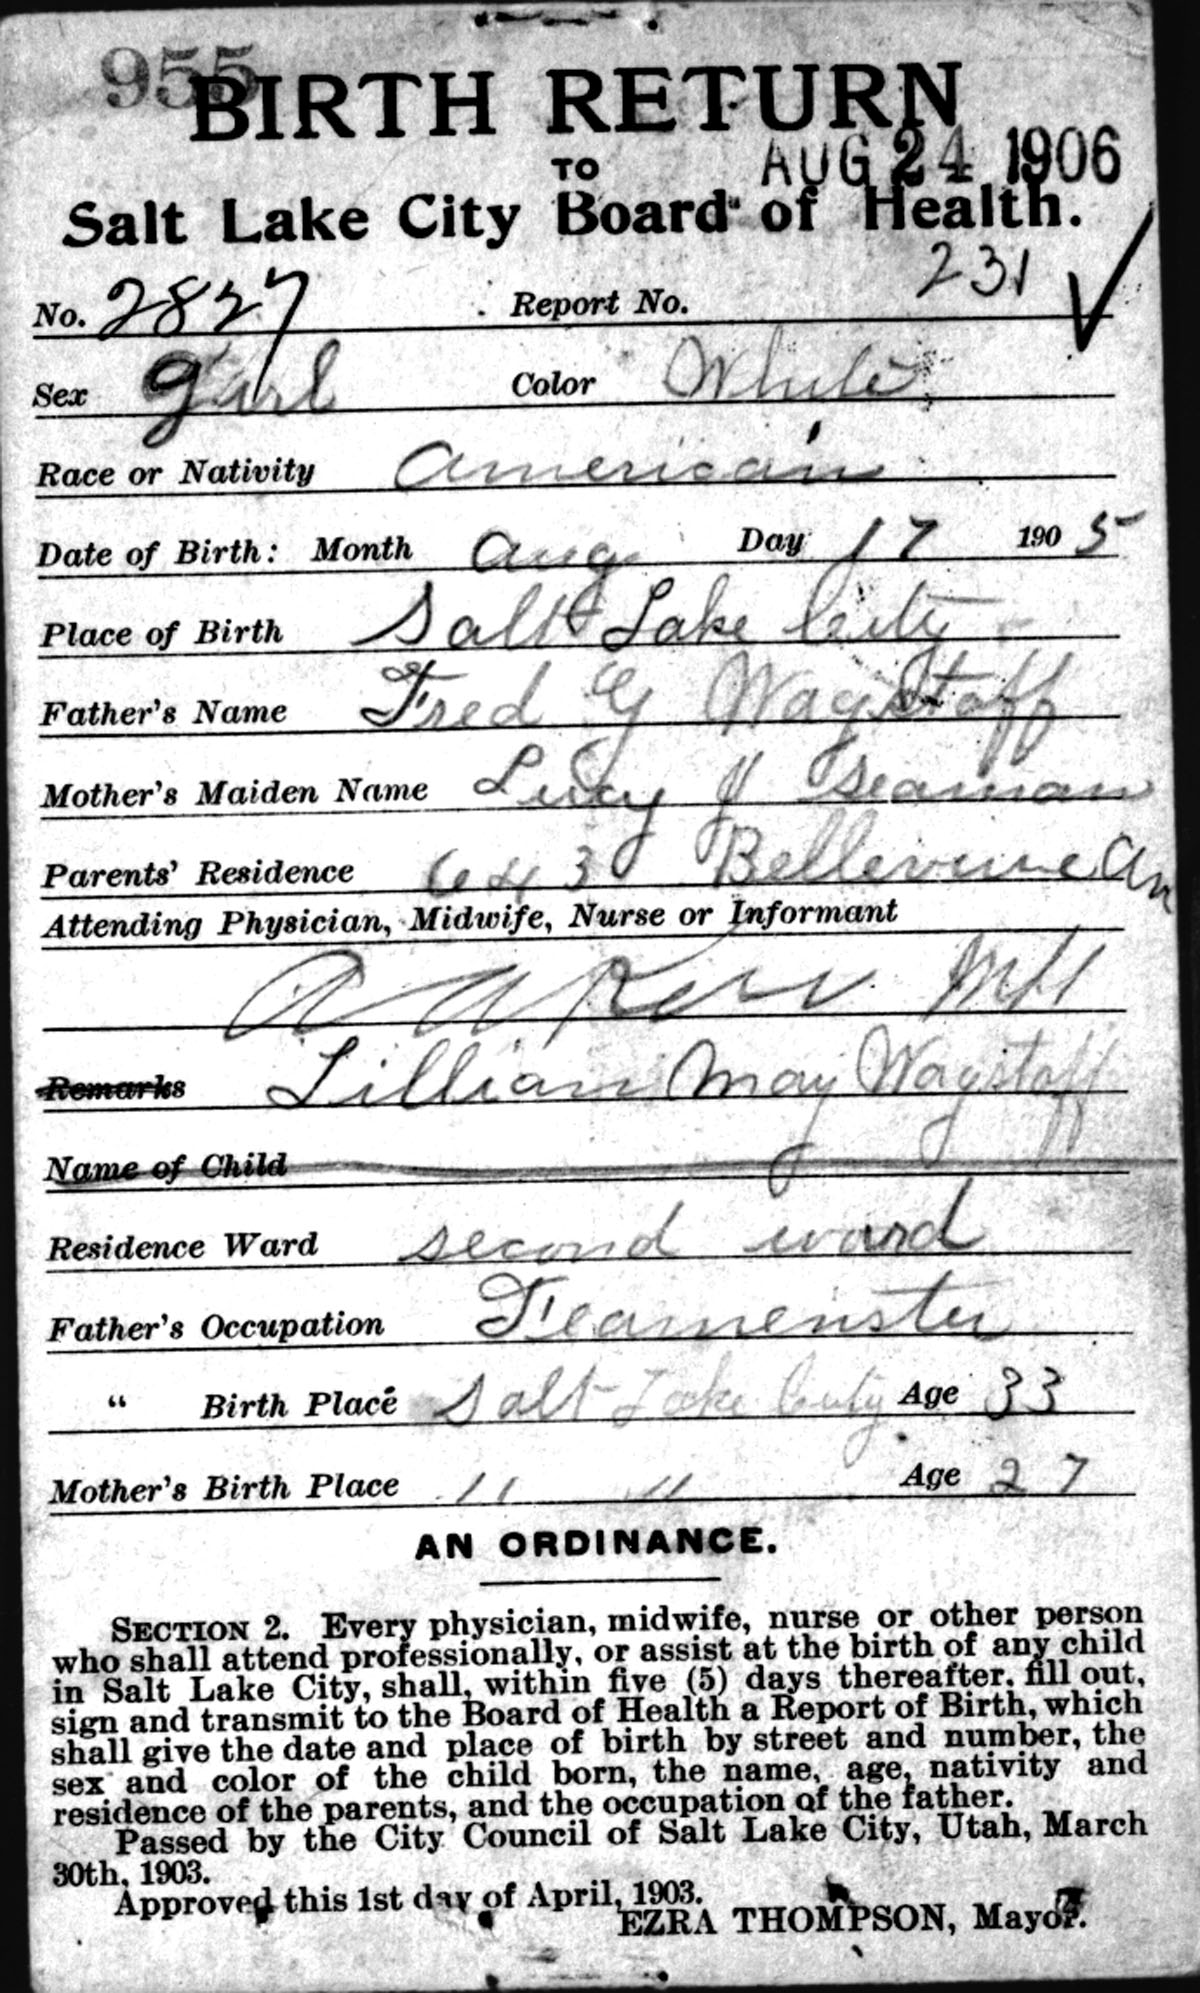 955
BIRTH RETURN
TO
AUG 24 1906
Salt Lake City Board of Health.
No. 2827 Report No. 231 ✓
Sex Girl Color White
Race or Nativity American
Date of Birth: Month Aug Day 17 1905
Place of Birth Salt Lake City
Father's Name Fred G Wagstaff
Mother's Maiden Name Lucy J Seaman
Parents' Residence 643 Bellevue Av
Attending Physician, Midwife, Nurse or Informant
Kerr
Remarks Lillian May Wagstaff
Name of Child
Residence Ward second ward
Father's Occupation Teamenster
" Birth Place Salt Lake City Age 33
Mother's Birth Place " " Age 27
AN ORDINANCE.
SECTION 2. Every physician, midwife, nurse or other person
who shall attend professionally, or assist at the birth of any child
in Salt Lake City, shall, within five (5) days thereafter, fill out,
sign and transmit to the Board of Health a Report of Birth, which
shall give the date and place of birth by street and number, the
sex and color of the child born, the name, age, nativity and
residence of the parents, and the occupation of the father.
Passed by the City Council of Salt Lake City, Utah, March
30th, 1903.
Approved this 1st day of April, 1903.
EZRA THOMPSON, Mayor.